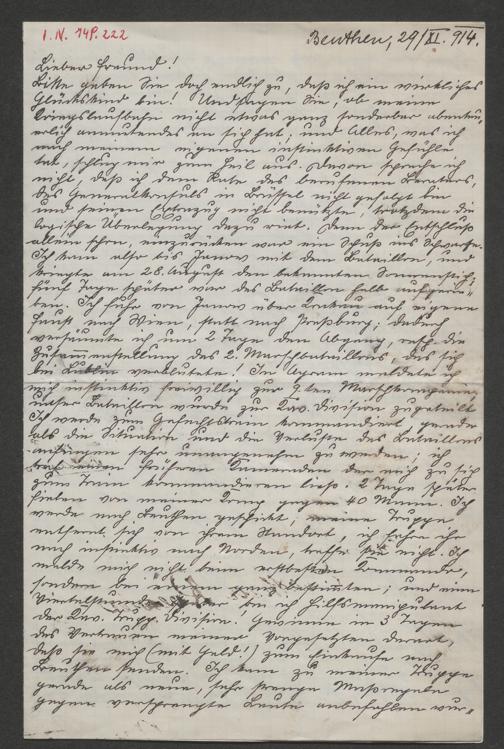 I. N. 148.222
Beuthen, 29/XI. 914.
Lieber Freund!
Bitte geben Sie doch endlich zu, daß ich ein wirkliches
Glückskind bin! Und sagen Sie, ob meine
Kriegslaufbahn nicht etwas ganz sonderbar abenteu-
erlich anmutendes an sich hat; und Alles, was ich
nach meinem eigenen instinktiven Gefühle
tat, schlug mir zum Heil aus. Davon spreche ich
nicht, daß ich dem Rate des berufenen Beraters,
des Generalkonsuls in Brüssel nicht gefolgt bin
und seinen Extrazug nicht benützte, trotzdem die
logische Überlegung dazu riet. Denn der Entschluß
allein schon, einzurücken war ein Schuß ins Schwarze.
Ich kam also bis Janow mit dem Bataillon, und
kriegte am 28. August den bekannten Sonnenstich;
fünf Tage später war das Bataillon halb aufgerie-
ben. Ich fuhr von Janow über Krakau auf eigene
Faust nach Wien, statt nach Preßburg; dadurch
versäumte ich um 2 Tage den Abgang, resp. die
Zusammenstellung des 2. Marschbataillons, das sich
bei Lublin verblutete! In Agram meldete ich
mich instinktiv freiwillig zur 9ten Marschkompagnie,
unser Bataillon wurde zur Kav. Division zugeteilt.
Ich werde zum Gefechtstrain kommandiert gerade
als die Situation und die Verluste des Bataillons
anfingen sehr unangenehm zu werden; ich
früheren Kameraden der mich zu sich
zum Train kommandieren ließ. 2 Tage später
fielen von meiner Komp gegen 40 Mann. Ich
werde nach Beuthen geschickt, meine Truppe
entfernt sich von ihrem Standort, ich fahre ihr
nach instinktiv nach Norden, treffe sie nicht. Ich
melde mich nicht beim erstbesten Kommando,
sondern bei ganz bestimmten; und eine
Viertelstunde bin ich Hilfsmanipulant
der Kav. Trupp. Division. Gewinne in 3 Tagen
das Vertrauen meiner Vorgesetzten derart,
daß sie mich (mit Geld!) zum Einkaufe nach
Beuthen senden. Ich kam zu meiner Truppe
gerade als neue, sehr strenge Maßregeln
gegen versprengte Leute anbefohlen wur-